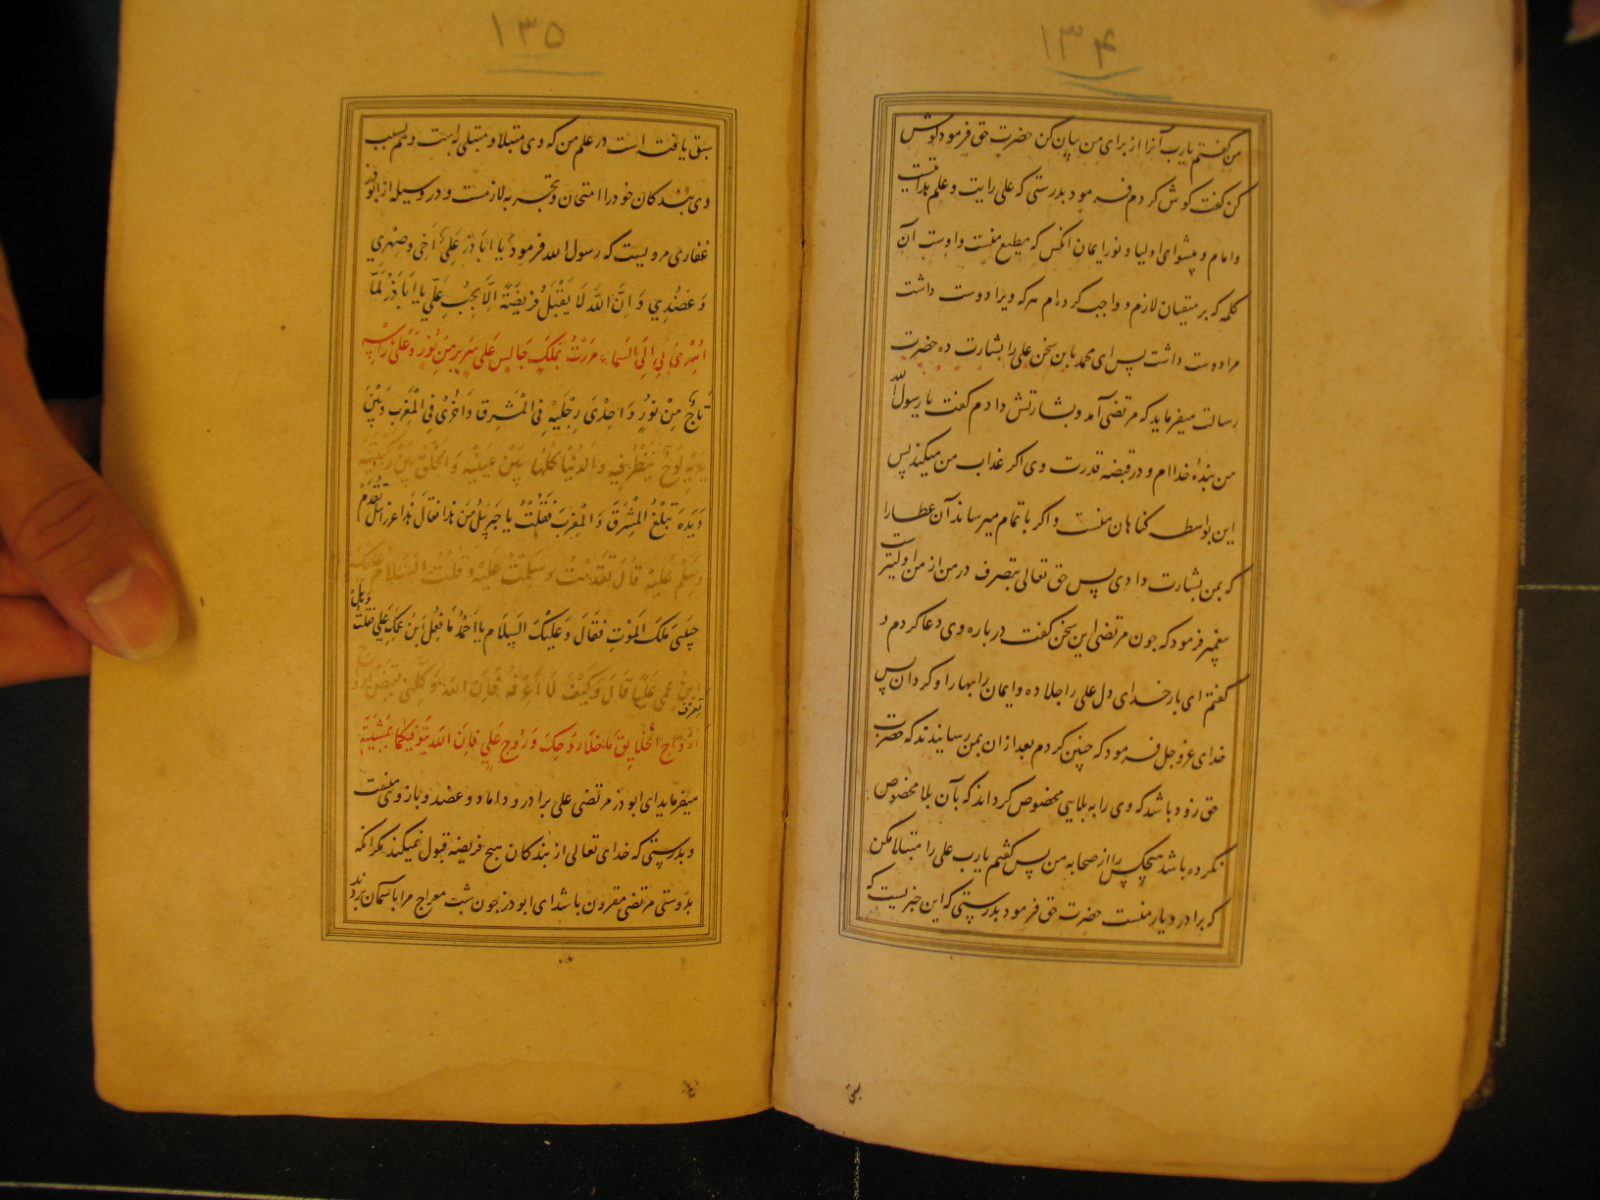 ۱۳۴
من گفتم یارب آنرا از برای من بیان کن حضرت حق فرمود گوش
کن گفت گوش کردم فرمود بدرستی که علی رایت و علم هدایتست
و امام و پیشوای اولیا و نور ایمان انکس که مطیع منست و اوست آن
کلمه که بر متقیان لازم و واجب کرده‌ام هرکه ویرا دوست داشت
مرا دوست داشت پس ای محمد باین سخن علی را بشارت ده حضرت
رسالت میفرماید که مرتضی آمد و بشارتش دادم گفت یا رسول الله
من بنده خداام و در قبضه قدرت وی اگر عذاب من میکند پس
این بواسطه گناهان منست و اگر باتمام میرساند آن عطا را
که بمن بشارت دادی پس حق تعالی بتصرف در من از من اولیتر است
پیغمبر فرمود که چون مرتضی این سخن گفت درباره وی دعا کردم و
گفتم ای بار خدای دل علی را جلا ده و ایمان را بهار او گردان پس
خدای عز و جل فرمود که چنین کردم بعد از ان بمن رسانیدند که حضرت
حق زود باشد که وی را به بلایی مخصوص گرداند که بآن بلا مخصوص
نکرده باشد هیچکس را از صحابه من پس گفتم یارب علی را مبتلا مکن
که برادر و یار منست حضرت حق فرمود بدرستی که این خبریست که
سبق
۱۳۵
سبق یافته است در علم من که وی مبتلا و مبتلی به است و هم بسبب
وی بندگان خود را امتحان و تجربه لازمست و در وسیله از ابوذر
غفاری مرویست که رسول الله فرمود یا اباذر علی اخی و صهری
و عضدی و ان الله لا یقبل فریضة الا بحب علی یا اباذر لما
اسری بی الی السماء مررت بملک جالس علی سریر من نور و علی راسه
تاج من نور و احدی رجلیه فی المشرق و اخری فی المغرب و بین
یدیه لوح ینظر فیه و الدنیا کلها بین عینیه و الخلق بین رکبتیه
و یده تبلغ المشرق و المغرب فقلت یا جبریل من هذا فقال هذا عزرائیل تقدم
و سلم علیه قال تقدمت و سلمت علیه و قلت السلام علیک
حبیبی ملک الموت فقال و علیک السلام یا احمد ما فعل ابن عمک علی فقلت و هل
تعرف ابن عمی علیا قال و کیف لا اعرفه فان الله وکلنی بقبض
ارواح الخلایق ما خلا روحک و روح علی فان الله یتوفیکما بمشیته
میفرماید ای ابوذر مرتضی علی برادر و داماد و عضد و بازوی منست
و بدرستی که خدای تعالی از بندگان هیچ فریضه قبول نمیکند مگر انکه
بدوستی مرتضی مقرون باشد ای ابوذر چون شب معراج مرا باسمان بردند